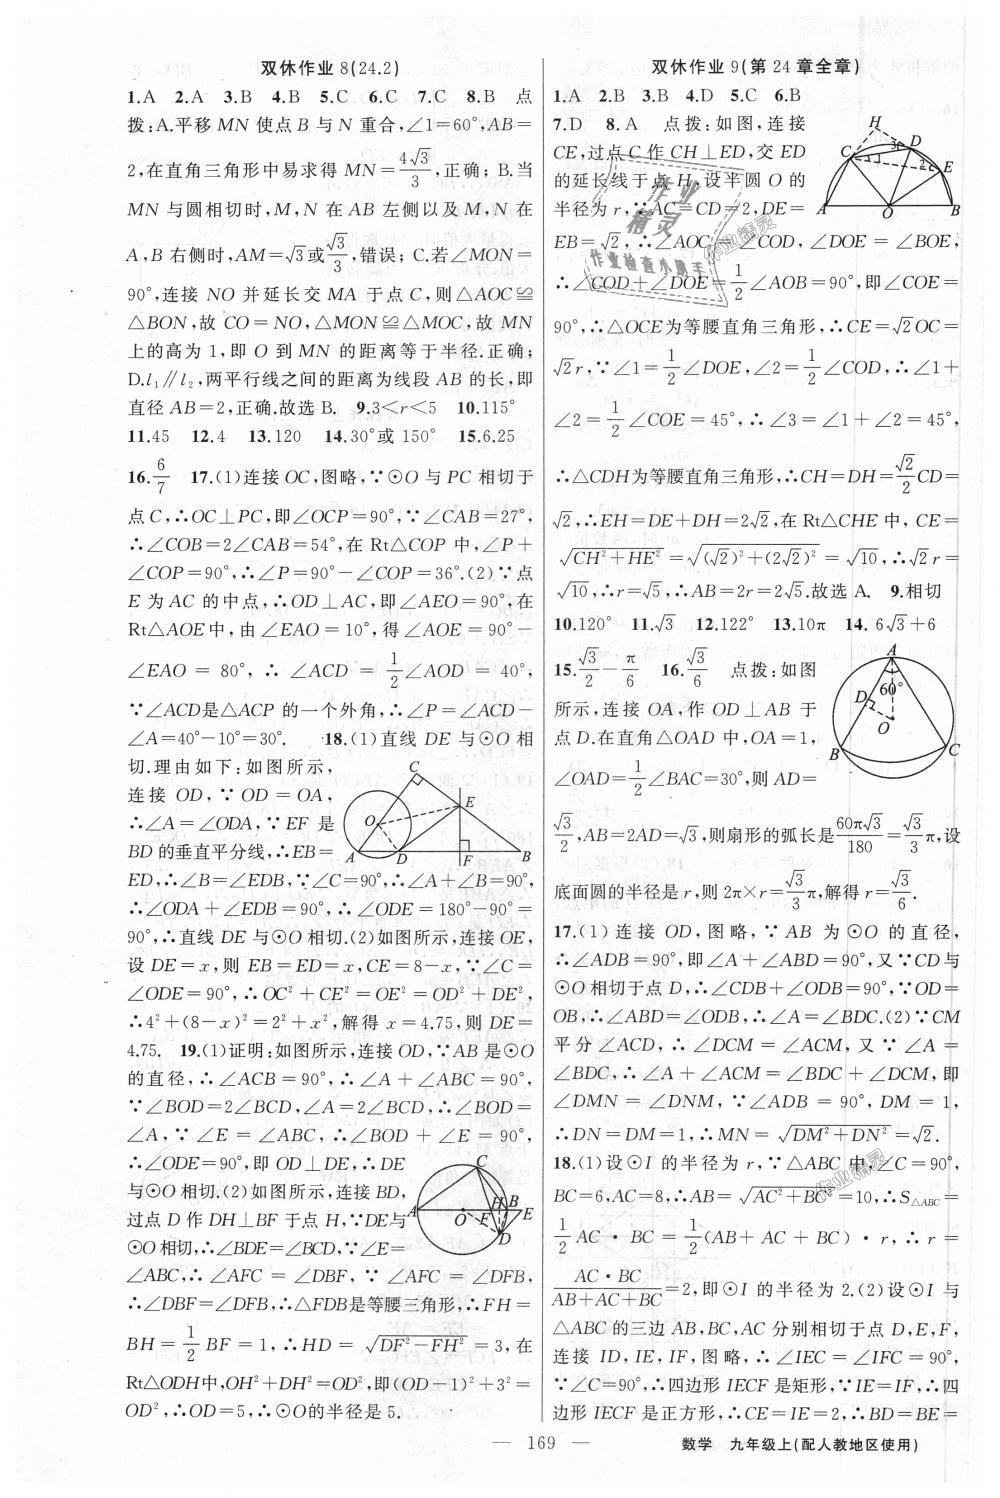 双休作业8(24.2)
1.A 2.A 3.B 4.B 5.C 6.C 7.C 8.B 点
拨:A.平移MN使点B与N重合,∠1=60°,AB=
2,在直角三角形中易求得MN=4√3/3,正确;B.当
MN与圆相切时,M,N在AB左侧以及M,N在
A,B右侧时,AM=√3或√3/3,错误;C.若∠MON=
90°,连接NO并延长交MA于点C,则△AOC≌
△BON,故CO=NO,△MON≌△MOC,故MN
上的高为1,即O到MN的距离等于半径.正确;
D.l₁∥l₂,两平行线之间的距离为线段AB的长,即
直径AB=2,正确.故选B. 9.3<r<5 10.115°
11.45 12.4 13.120 14.30°或150° 15.6.25
16.6/7 17.(1)连接OC,图略,∵⊙O与PC相切于
点C,∴OC⊥PC,即∠OCP=90°,∵∠CAB=27°,
∴∠COB=2∠CAB=54°,在Rt△COP中,∠P+
∠COP=90°,∴∠P=90°-∠COP=36°.(2)∵点
E为AC的中点,∴OD⊥AC,即∠AEO=90°,在
Rt△AOE中,由∠EAO=10°,得∠AOE=90°-
∠EAO=80°,∴∠ACD=1/2∠AOD=40°,
∵∠ACD是△ACP的一个外角,∴∠P=∠ACD-
∠A=40°-10°=30°. 18.(1)直线DE与⊙O相
切.理由如下:如图所示,
连接OD,∵OD=OA,
∴∠A=∠ODA,∵EF是
BD的垂直平分线,∴EB=
ED,∴∠B=∠EDB,∵∠C=90°,∴∠A+∠B=90°,
∴∠ODA+∠EDB=90°,∴∠ODE=180°-90°=
90°,∴直线DE与⊙O相切.(2)如图所示,连接OE,
设DE=x,则EB=ED=x,CE=8-x,∵∠C=
∠ODE=90°,∴OC²+CE²=OE²=OD²+DE²,
∴4²+(8-x)²=2²+x²,解得x=4.75,则DE=
4.75. 19.(1)证明:如图所示,连接OD,∵AB是⊙O
的直径,∴∠ACB=90°,∴∠A+∠ABC=90°,
∵∠BOD=2∠BCD,∠A=2∠BCD,∴∠BOD=
∠A,∵∠E=∠ABC,∴∠BOD+∠E=90°,
∴∠ODE=90°,即OD⊥DE,∴DE
与⊙O相切.(2)如图所示,连接BD,
过点D作DH⊥BF于点H,∵DE与
⊙O相切,∴∠BDE=∠BCD,∵∠E=
∠ABC,∴∠AFC=∠DBF,∵∠AFC=∠DFB,
∴∠DBF=∠DFB,∴△FDB是等腰三角形,∴FH=
BH=1/2BF=1,∴HD=√(DF²-FH²)=3,在
Rt△ODH中,OH²+DH²=OD²,即(OD-1)²+3²=
OD²,∴OD=5,∴⊙O的半径是5.
C
O
E
A
D
F
B
C
A
O
F
H
B
E
D
双休作业9(第24章全章)
1.A 2.B 3.B 4.D 5.C 6.B
7.D 8.A 点拨:如图,连接
CE,过点C作CH⊥ED,交ED
的延长线于点H,设半圆O的
半径为r,∵AC=CD=2,DE=
EB=√2,∴∠AOC=∠COD,∠DOE=∠BOE,
∴∠COD+∠DOE=1/2∠AOB=90°,即∠COE=
90°,∴△OCE为等腰直角三角形,∴CE=√2OC=
√2r,∵∠1=1/2∠DOE,∠2=1/2∠COD,∴∠1+
∠2=1/2∠COE=45°,∴∠3=∠1+∠2=45°,
∴△CDH为等腰直角三角形,∴CH=DH=√2/2CD=
√2,∴EH=DE+DH=2√2,在Rt△CHE中,CE=
√(CH²+HE²)=√((√2)²+(2√2)²)=√10,∴√2r=
√10,∴r=√5,∴AB=2r=2√5.故选A. 9.相切
10.120° 11.√3 12.122° 13.10π 14.6√3+6
15.√3/2-π/6 16.√3/6 点拨:如图
所示,连接OA,作OD⊥AB于
点D.在直角△OAD中,OA=1,
∠OAD=1/2∠BAC=30°,则AD=
√3/2,AB=2AD=√3,则扇形的弧长是60π√3/180=√3/3π,设
底面圆的半径是r,则2π×r=√3/3π,解得r=√3/6.
17.(1)连接OD,图略,∵AB为⊙O的直径,
∴∠ADB=90°,即∠A+∠ABD=90°,又∵CD与
⊙O相切于点D,∴∠CDB+∠ODB=90°,∵OD=
OB,∴∠ABD=∠ODB,∴∠A=∠BDC.(2)∵CM
平分∠ACD,∴∠DCM=∠ACM,又∵∠A=
∠BDC,∴∠A+∠ACM=∠BDC+∠DCM,即
∠DMN=∠DNM,∵∠ADB=90°,DM=1,
∴DN=DM=1,∴MN=√(DM²+DN²)=√2.
18.(1)设⊙I的半径为r,∵△ABC中,∠C=90°,
BC=6,AC=8,∴AB=√(AC²+BC²)=10,∴S△ABC=
1/2AC·BC=1/2(AB+AC+BC)·r,∴r=
AC·BC/(AB+AC+BC)=2,即⊙I的半径为2.(2)设⊙I与
△ABC的三边AB,BC,AC分别相切于点D,E,F,
连接ID,IE,IF,图略,∴∠IEC=∠IFC=90°,
∵∠C=90°,∴四边形IECF是矩形,∵IE=IF,∴四
边形IECF是正方形,∴CE=IE=2,∴BD=BE=
H
D
C
3
1
2
E
A
O
B
A
D
60°
O
B
C
作业
精灵
作业检查小助手
作业精灵
作业精灵
— 169 — 数学 九年级上(配人教地区使用)